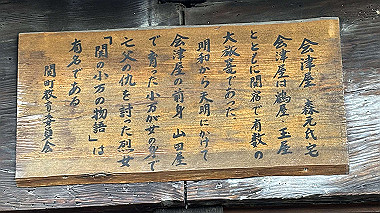 会津屋 森元氏宅
会津屋は鶴屋、玉屋
とともに関宿で有数の
大旅篭であった
明和から天明にかけて
会津屋の前身 山田屋
で育った小万が女の身で
亡父の仇を討った烈女
「関の小万の物語」は
有名である
関町教育委員会